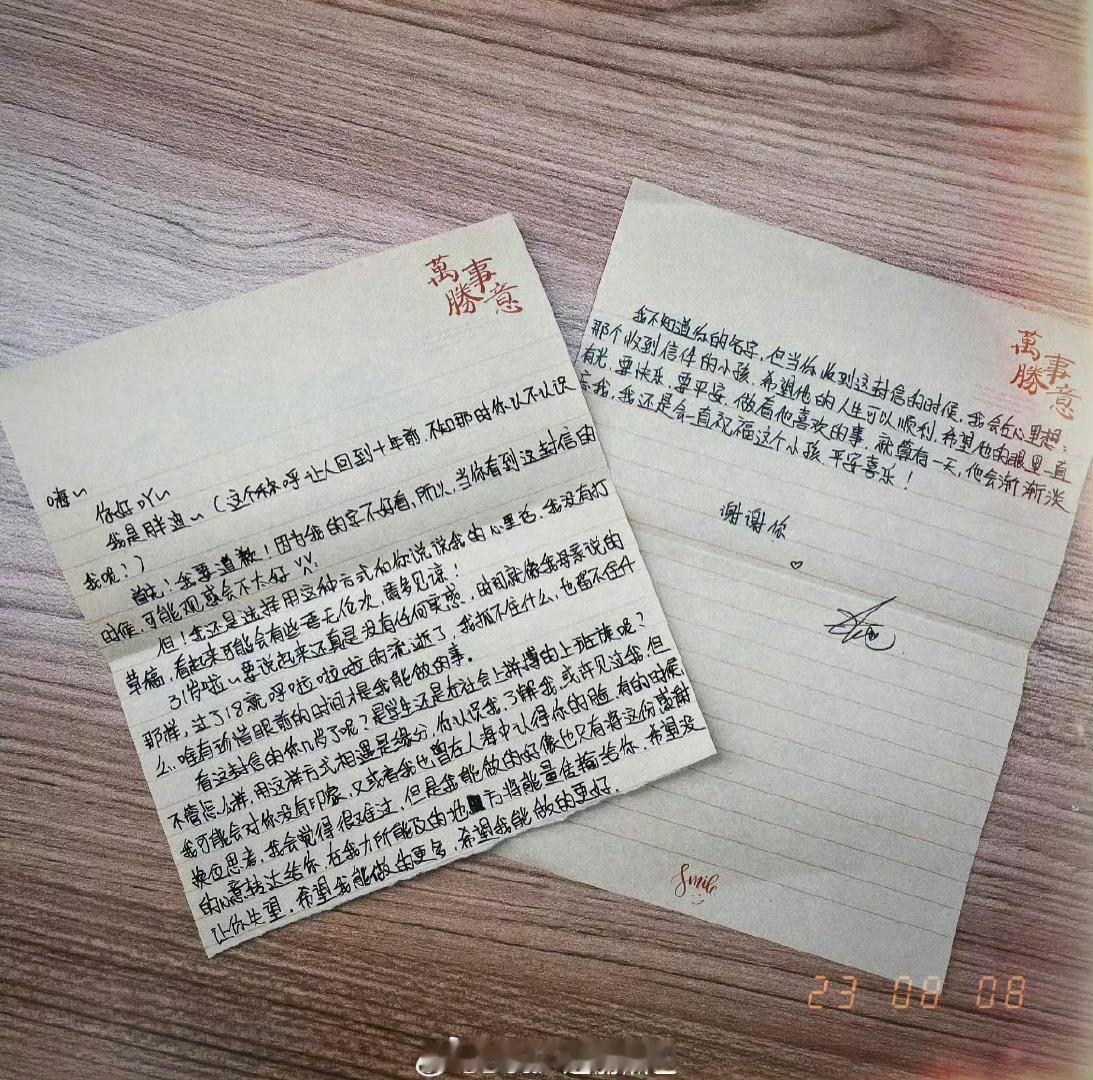 萬事
勝意
嗨~
你好吖~
我是胖迪~(这个称呼让人回到十年前,不知那时你认不认识
我呢?)
首先!我要道歉!因为我的字不好看,所以,当你看到这封信的
时候,可能观感会不太好
但!我还是选择用这种方式和你说说我的心里话,我没有打
草稿,看起来可能会有些语无伦次,请多见谅!
31岁啦~要说起来还真是没有任何实感,时间就像我母亲说的
那样,过了18就呼啦啦啦的流逝了,我抓不住什么,也留不住什
么,唯有珍惜眼前的时间才是我能做的事。
看这封信的你几岁了呢?是学生还是在社会上拼搏的上班族呢?
不管怎么样,用这样方式相遇是缘分,你认识我,了解我,或许见过我,但
我可能会对你没有印象,又或者我也曾在人海中认得你的脸,有的时候
换位思考,我会觉得很难过,但是我能做的好像也只有将这份感谢
的心意转达给你,在我力所能及的地方将能量传输给你,希望没
让你失望,希望我能做的更多,希望我能做的更好.
萬事
勝意
我不知道你的名字,但当你收到这封信的时候,我会在心里想:
那个收到信件的小孩,希望他的人生可以顺利,希望他的眼里一直
有光,要快乐,要平安,做着他喜欢的事,就算有一天,他会渐渐淡
忘我,我还是会一直祝福这个小孩,平安喜乐!
谢谢你
Smile
23 08 08